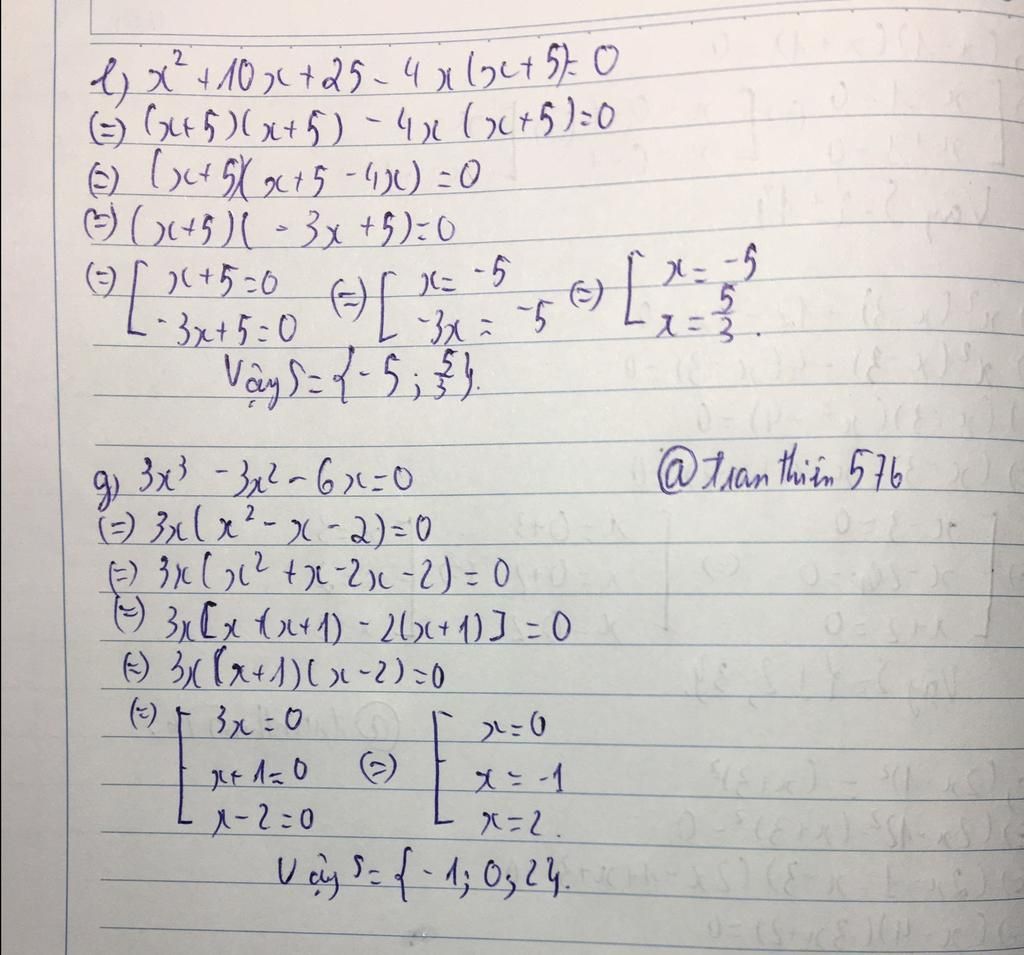 e) x² + 10x + 25 - 4x(x+5) = 0
(=) (x+5)(x+5) - 4x(x+5) = 0
(=) (x+5)(x+5 - 4x) = 0
(=) (x+5)(-3x+5) = 0
(=) [ x+5=0 (=) [ x = -5 (=) [ x = -5
-3x+5=0 -3x = -5 x = 5/3.
Vậy S = {-5; 5/3}.
g) 3x³ - 3x² - 6x = 0
@tranthiên 576
(=) 3x(x² - x - 2) = 0
(=) 3x(x² + x - 2x - 2) = 0
(=) 3x[x(x+1) - 2(x+1)] = 0
(=) 3x(x+1)(x-2) = 0
(=) [ 3x = 0 [ x = 0
x+1 = 0 (=) x = -1
x-2 = 0 x = 2.
Vậy S = {-1; 0; 2}.